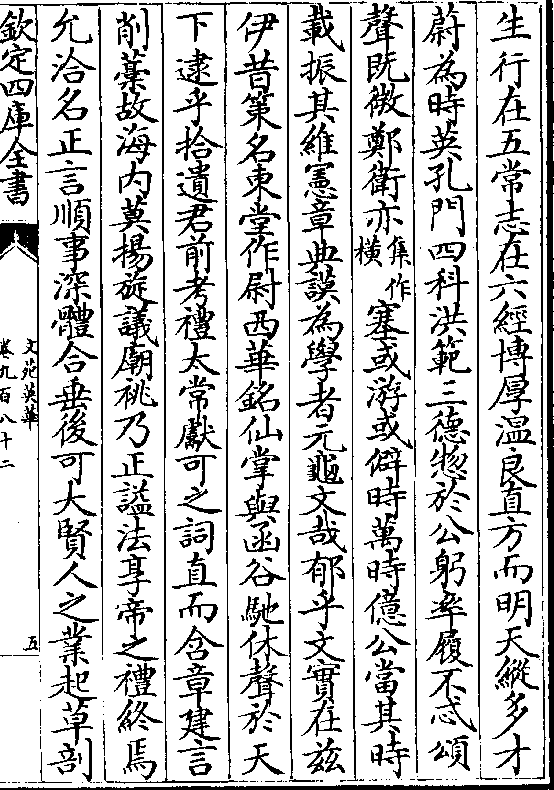 生行在五常志在六經博厚溫良直方而明天縱多才
蔚為時英孔門四科洪範三德惣於公躬率履不忒頌
聲既微鄭衛亦集作橫塞或游或僻時萬時億公當其時
載振其維憲章典謨為學者元龜文哉郁乎文實在兹
伊昔第名東堂作尉西華銘仙掌與函谷馳休聲於天
下逮乎拾遺君前考禮太常獻可之詞直而含章建言
削藁故海内莫揚旋議廟祧乃正謚法享帝之禮終焉
允洽名正言順事深體合垂後可大賢人之業起草剖
欽定四庫全書
文苑英華
卷九百八十二
五